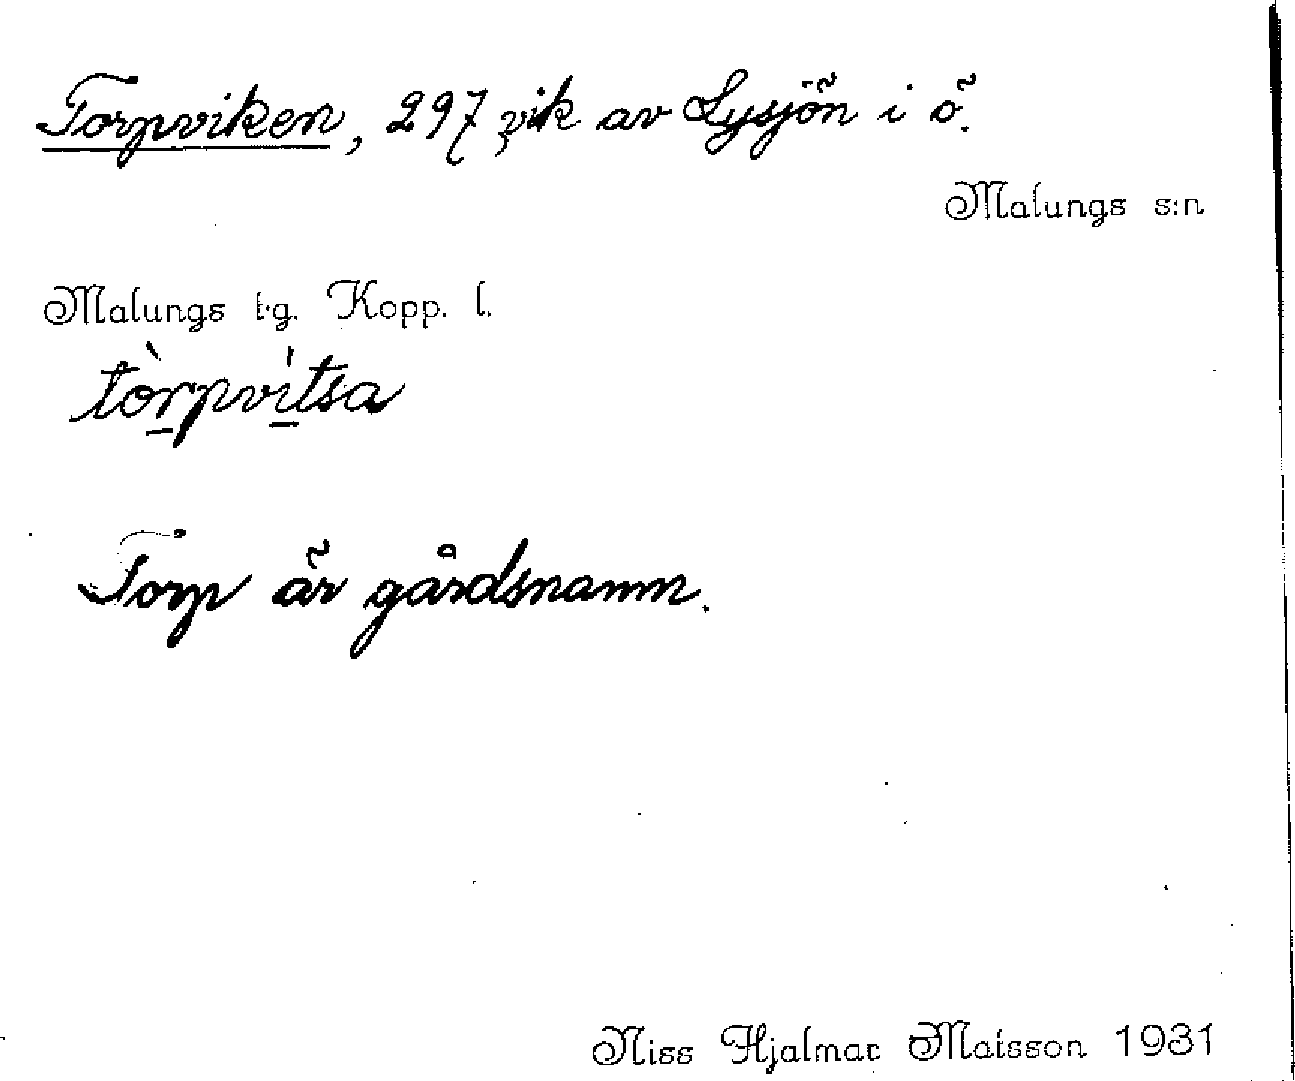 Torpviken, 297 vik av Lysjön i ö.
Malungs s:n
Malungs t.g. Kopp. l.
tòrpvìtsa
Torp är gårdsnamn.
Niss Hjalmar Matsson 1931